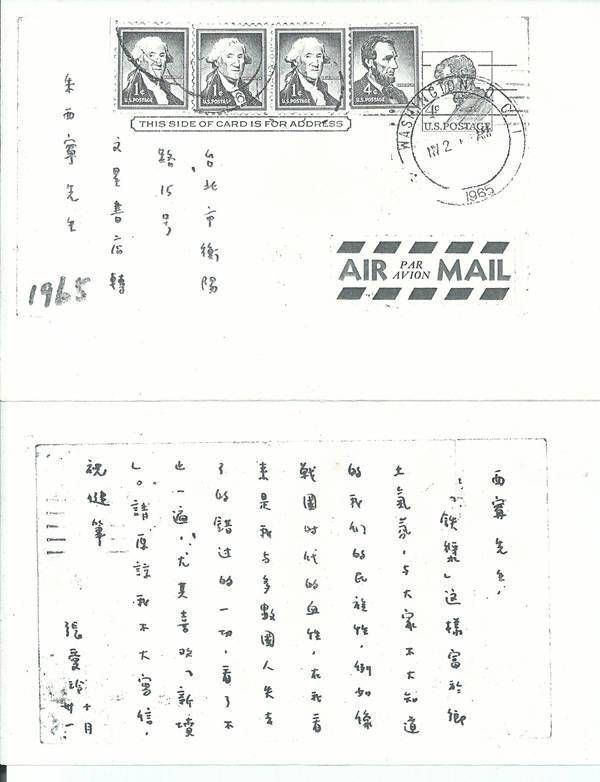 1¢
U.S. POSTAGE
1¢
U.S. POSTAGE
1¢
U.S. POSTAGE
4¢
U.S. POSTAGE
U.S. POSTAGE
WASHINGTON, D.C. 1
1965
THIS SIDE OF CARD IS FOR ADDRESS
台北市衡陽
路15号
文星書店轉
朱西寧先生
1965
AIR PAR AVION MAIL
西寧先生，
「鉄漿」这樣富於鄉
土氣氛，与大家不大知道
的我们的民族性，例如像
戰國时代的血性，在我看
來是我与多數國人失去
了的错过的一切，看了不
止一遍，尤其喜欢「新墳
」。請原諒我不大寫信，
祝健筆
張愛玲
十月
卅一